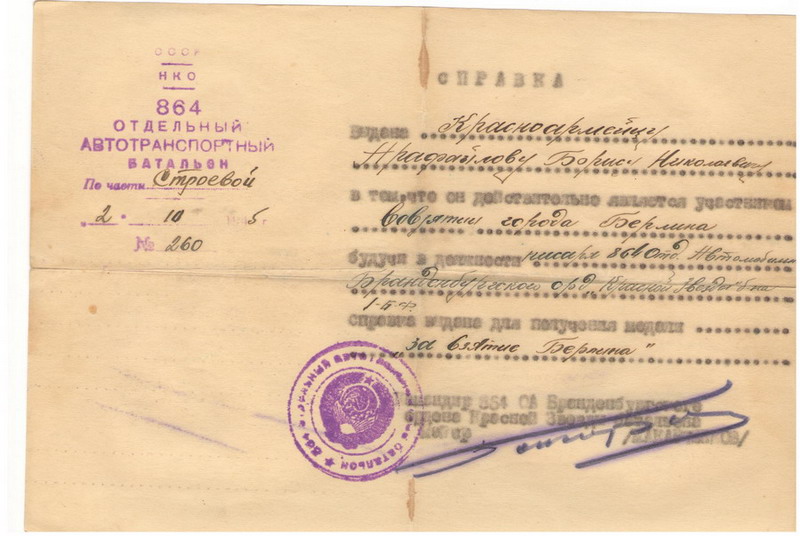 СССР
НКО
864
ОТДЕЛЬНЫЙ
АВТОТРАНСПОРТНЫЙ
БАТАЛЬОН
По части Строевой
„2" 10 5 г.
№ 260
СПРАВКА
Выдана Красноармейцу
Борису Николаевичу
в том, что он действительно является участником
взятии города Берлина
будучи в должности писаря 864 Отд. Автомоб.
Бранденбургского орд. Красной Звезды б-на
1-БФ.
Справка выдана для получения медали
„за взятие Берлина"
Командир 864 ОА Бранденбургского
ордена Красной Звезды батальона
Майор
864 ОТДЕЛЬНЫЙ АВТОТРАНСПОРТНЫЙ БАТАЛЬОН